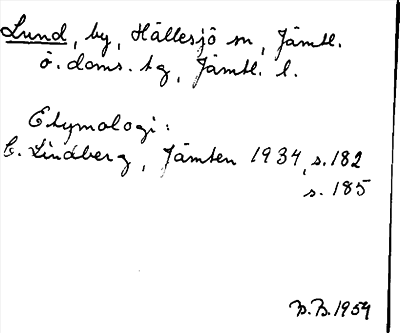 Lund, by, Hällesjö sn, Jämtl.
ö. doms. tg, Jämtl. l.
Etymologi:
C. Lindberg, Jämten 1934, s. 182
s. 185
B.1954